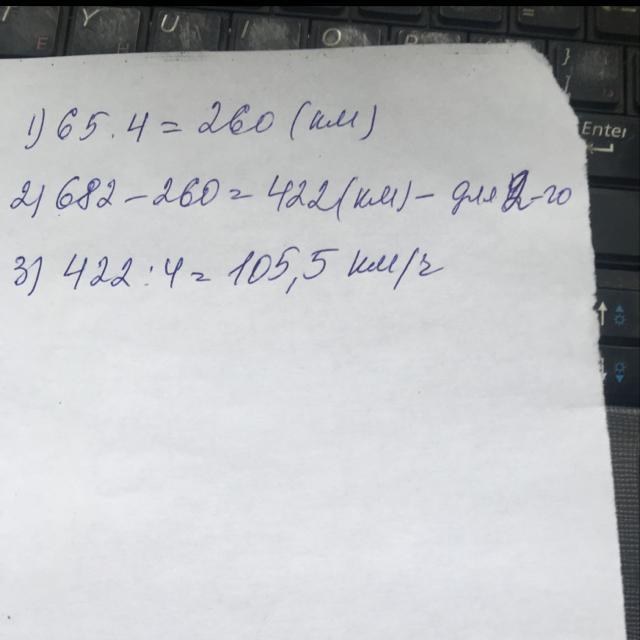 Y U I O P
Enter
1) 65 . 4 = 260 (км)
2) 682 - 260 = 422 (км) - для 2-го
3) 422 : 4 = 105,5 км/ч